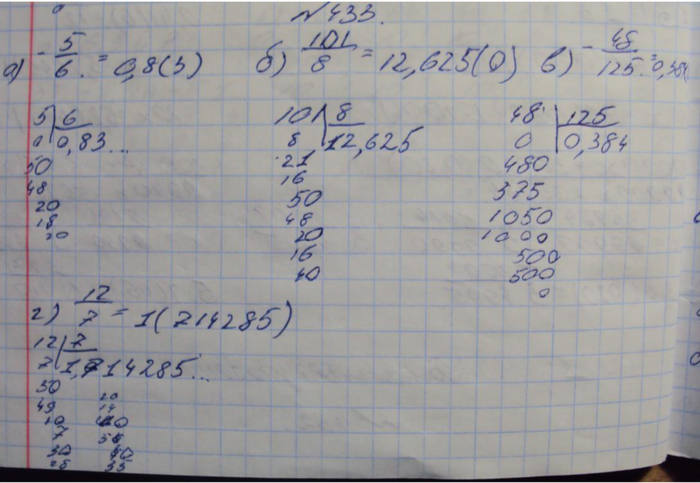 №433.
а) - 5/6 = 0,8(3) б) 101/8 = 12,625(0) в) - 48/125 = 0,384
5 | 6 101 | 8 48 | 125
0 0,83... 8 12,625 0 0,384
50 21 480
48 16 375
20 50 1050
18 48 1000
20 20 500
16 500
40 0
г) 12/7 = 1(714285)
12 | 7
7 1,714285...
50
49 20
10 14
7 60
30 56
28 40
35